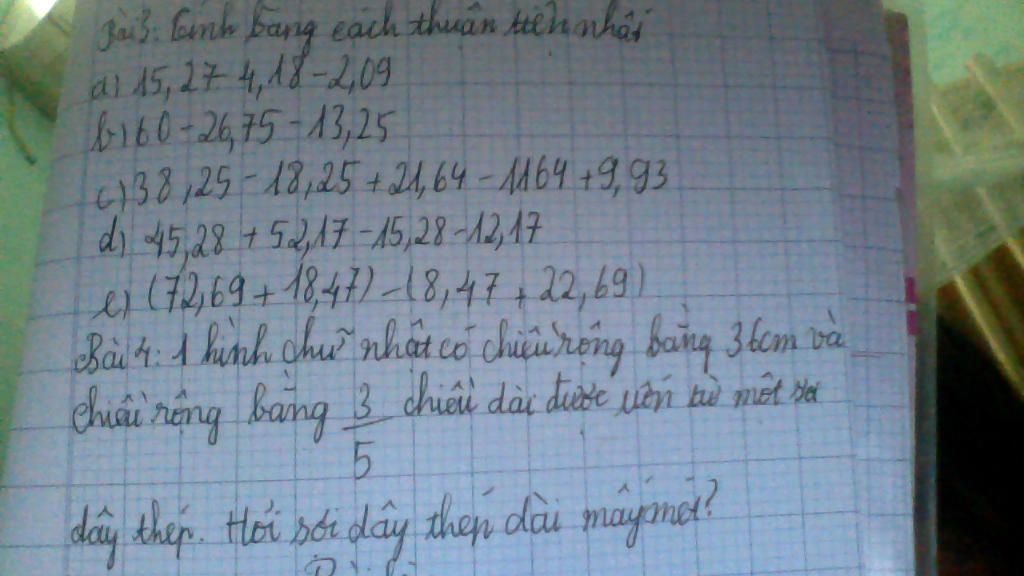 Bài 3: Tính bằng cách thuận tiện nhất
a) 15,27 - 4,18 - 2,09
b) 60 - 26,75 - 13,25
c) 38,25 - 18,25 + 21,64 - 1164 + 9,93
d) 45,28 + 52,17 - 15,28 - 12,17
e) (72,69 + 18,47) - (8,47 + 22,69)
Bài 4: 1 hình chữ nhật có chiều rộng bằng 36cm và
chiều rộng bằng 3/5 chiều dài được uốn từ một sợi
dây thép. Hỏi sợi dây thép dài mấy mét?